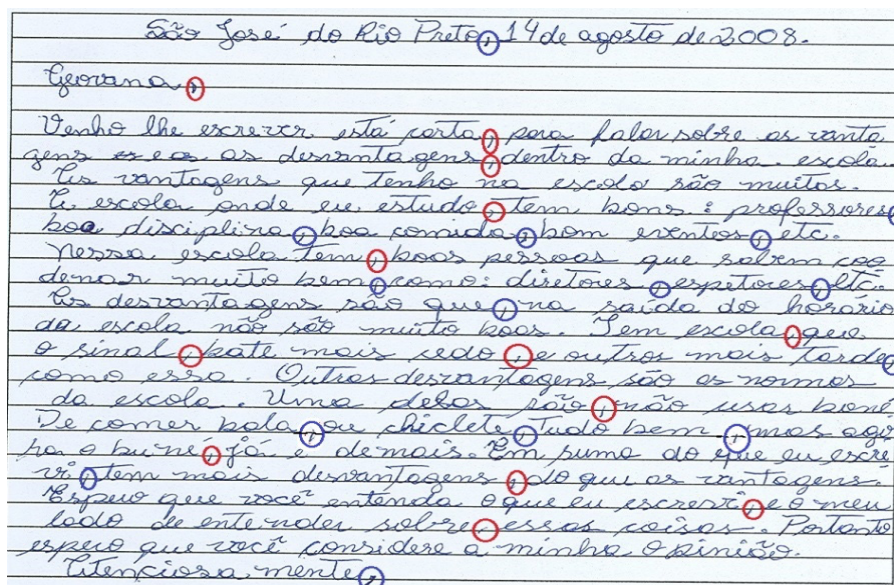 São José do Rio Preto, 14 de agosto de 2008.
Geovana,
Venho lhe escrever está carta, para falar sobre as vanta
gens e as desvantagens, dentro da minha escola.
As vantagens que tenho na escola são muitas.
A escola onde eu estudo, tem bons: professores,
boa disciplina, boa comida, bom eventos, etc.
Nessa escola tem, boas pessoas que sabem coo
denar muito bem, como: diretores, espetores, etc.
As desvantagens são que, na saída do horário
da escola não são muito boas. Tem escola, que
o sinal, bate mais cedo, e outros mais tarde,
como essa. Outras desvantagens são as normas
da escola. Uma delas são, não usar boné
De comer bala, ou chiclete, tudo bem, mas ago
ra o buné, já é demais. Em suma do que eu escre
vi, tem mais desvantagens, do que as vantagens.
Espero que você entenda o que eu escrevi, e o meu
lado de entender sobre, essas coisas. Portanto
espero que você considere a minha opinião.
Atenciosa mente,